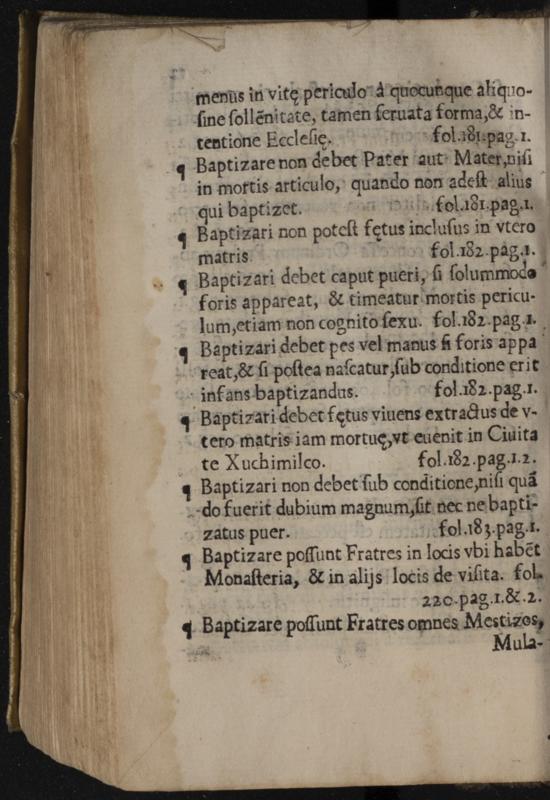 menus in vitę periculo à quocunque aliquo-
ſine ſollẽnitate, tamen ſeruata forma,& in-
tentione Eccleſię. fol.181.pag.1.
¶ Baptizare non debet Pater aut Mater,niſi
in mortis articulo, quando non adeſt alius
qui baptizet. fol.181.pag.1.
¶ Baptizari non poteſt fętus incluſus in vtero
matris fol.182.pag.1.
¶ Baptizari debet caput pueri, ſi ſolummodo
foris appareat, & timeatur mortis pericu-
lum,etiam non cognito ſexu. fol.182.pag.1.
¶ Baptizari debet pes vel manus ſi foris appa
reat,& ſi poſtea naſcatur,ſub conditione erit
infans baptizandus. fol.182.pag.1.
¶ Baptizari debet fętus viuens extractus de v-
tero matris iam mortuę,vt euenit in Ciuita
te Xuchimilco. fol.182.pag.1.2.
¶ Baptizari non debet ſub conditione,niſi quã
do fuerit dubium magnum,ſit nec ne bapti-
zatus puer. fol.183.pag.1.
¶ Baptizare poſſunt Fratres in locis vbi habẽt
Monaſteria, & in alijs locis de viſita. fol.
220.pag.1.&.2.
¶ Baptizare poſſunt Fratres omnes Mestizos,
Mula-